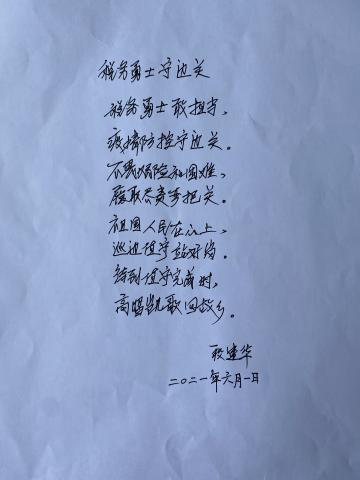 税务勇士守边关
税务勇士敢担当，
疫情防控守边关。
不畏艰险和困难，
履职尽责季把关。
祖国人民在心上，
巡边值守站好岗。
待到值守完美时，
高唱凯歌回故乡。
敬建华
二〇二一年六月一日